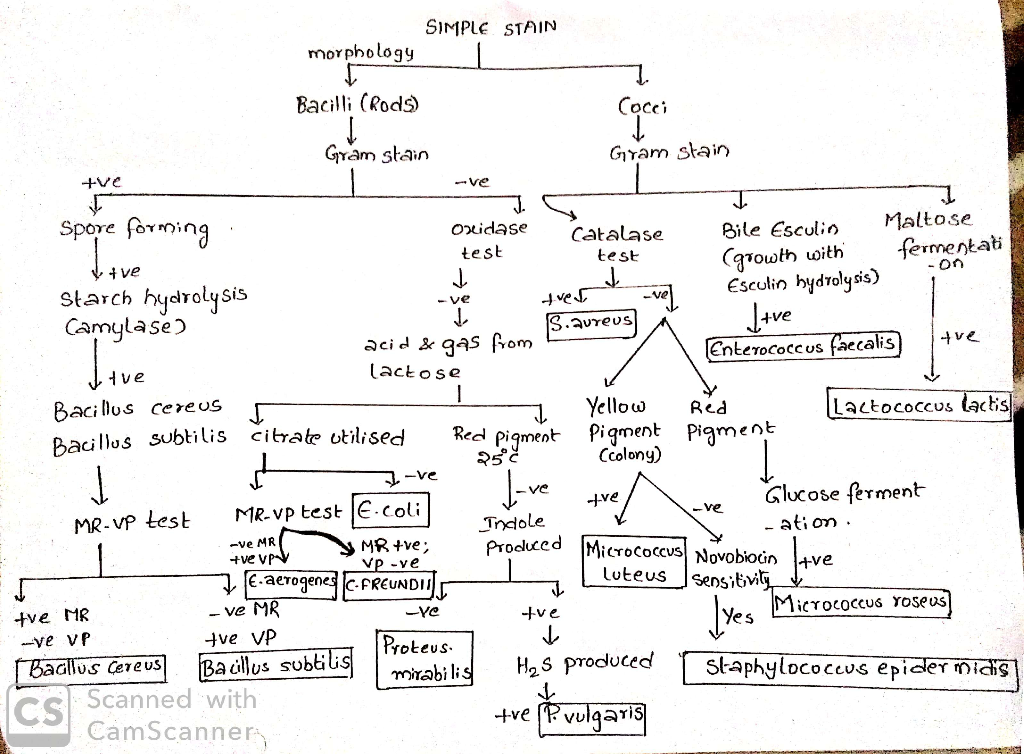 SIMPLE STAIN
morphology
Bacilli (Rods)
Cocci
Gram stain
Gram stain
+ve
-ve
Spore forming
oxidase
test
Catalase
test
Bile Esculin
(growth with
Esculin hydrolysis)
Maltose
fermentati
-on
+ve
Starch hydrolysis
(amylase)
-ve
acid & gas from
lactose
+ve
-ve
S.aureus
+ve
Enterococcus faecalis
+ve
Lactococcus lactis
+ve
Bacillus cereus
Bacillus subtilis
citrate utilised
Red pigment
25°C
Yellow
Pigment
(colony)
Red
Pigment
MR-VP test
-ve
MR-VP test
E.coli
-ve
Indole
Produced
+ve
-ve
Glucose ferment
-ation.
-ve MR
+ve VP
MR +ve;
VP -ve
E.aerogenes
C.FREUNDII
Micrococcus
luteus
Novobiocin
sensitivity
+ve
Micrococcus roseus
+ve MR
-ve VP
Bacillus cereus
-ve MR
+ve VP
Bacillus subtilis
-ve
Proteus.
mirabilis
+ve
H2S produced
+ve
P.vulgaris
Yes
Staphylococcus epidermidis
CS
Scanned with
CamScanner